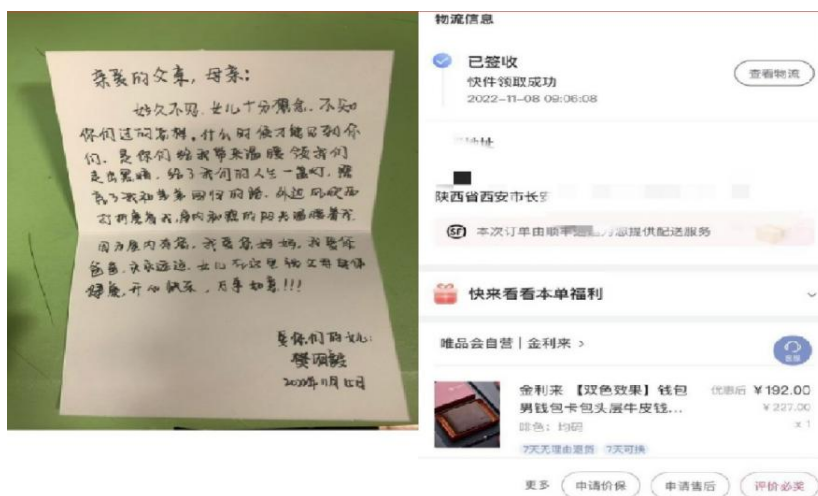 亲爱的父亲，母亲：
好久不见，女儿十分想念。不知
你们过的怎样，什么时候才能见到你
们。是你们给我带来温暖领我们
走出黑暗，给了我们的人生一盏灯，照
亮了我和弟弟回归的路。外边风吹雨
打折磨着我，屋内和暖的阳光温暖着我
因为屋内有爸，我爱您妈妈，我爱你
爸爸，永永远远。女儿在这里祝父母身体
健康，开心快乐，万事如意！！！
爱你们的女儿：
2022年11月15日
物流信息
已签收
快件领取成功
2022-11-08 09:06:08
查看物流
地址
陕西省西安市长安
SF 本次订单由顺丰 提供配送服务
快来看看本单福利
唯品会自营 | 金利来 >
客服
金利来 【双色效果】钱包 优惠后 ¥192.00
男钱包卡包头层牛皮钱... ¥227.00
啡色；均码 x1
7天无理由退货 7天可换
更多 申请价保 申请售后 评价必奖